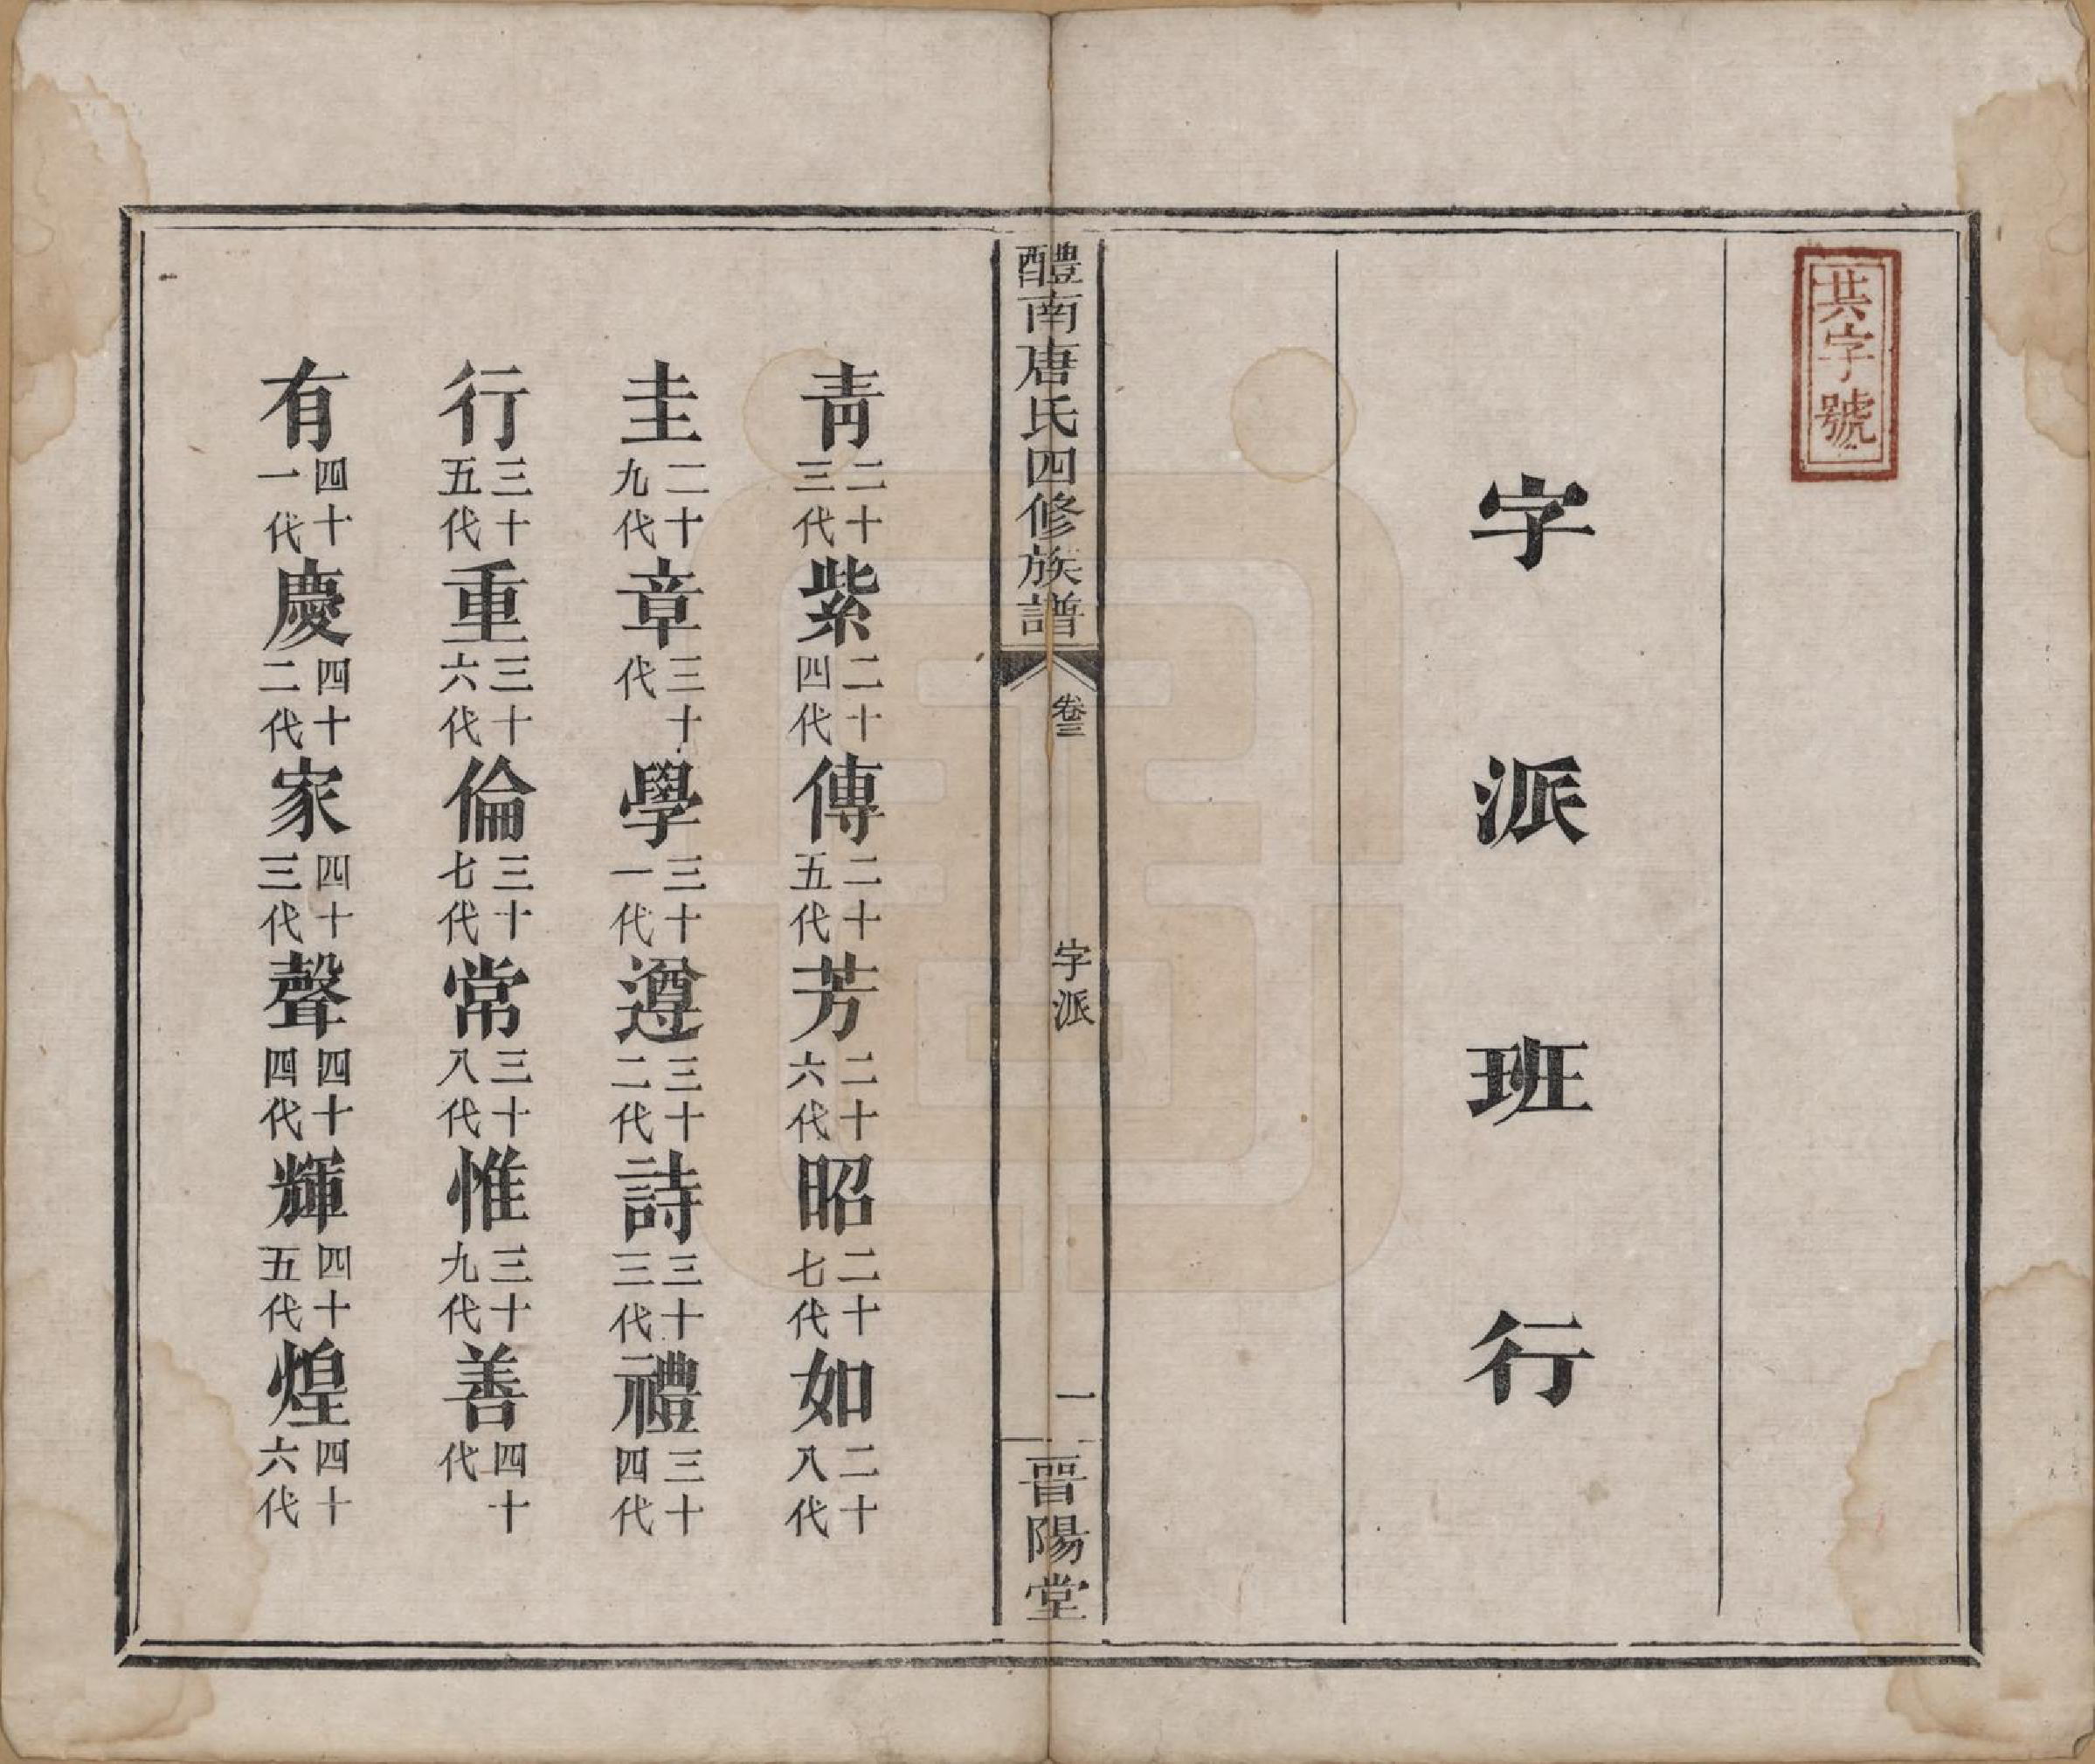 共字號
字派班行
醴南唐氏四修族譜 卷三 字派 一 晉陽堂
靑二十三代紫二十四代傳二十五代芳二十六代昭二十七代如二十八代
圭二十九代章三十代學三十一代遵三十二代詩三十三代禮三十四代
行三十五代重三十六代倫三十七代常三十八代惟三十九代善四十代
有四十一代慶四十二代家四十三代聲四十四代輝四十五代煌四十六代